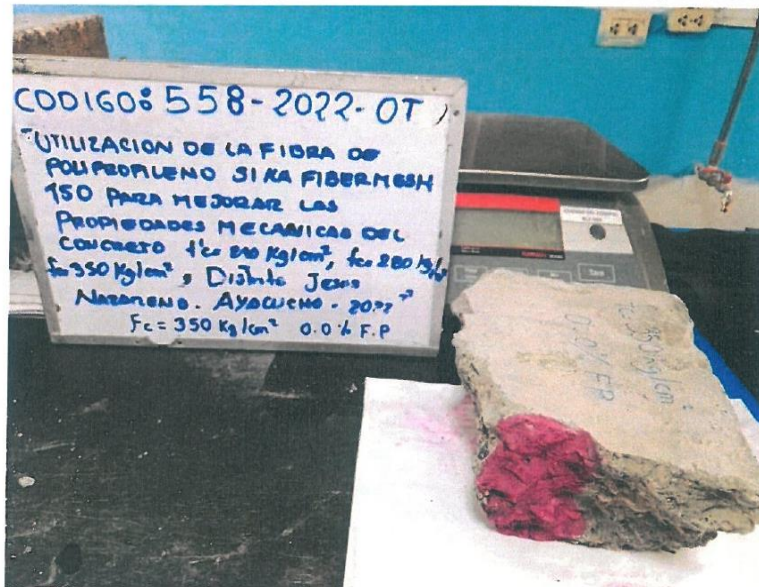 CODIGO: 558-2022-OT
"UTILIZACION DE LA FIBRA DE
POLIPROPILENO SIKA FIBERMESH
150 PARA MEJORAR LAS
PROPIEDADES MECANICAS DEL
CONCRETO f'c= 210 Kg/cm², fc= 280 Kg/cm²
fc= 350 Kg/cm², Distrito Jesus
NAZARENO. AYACUCHO - 2022"
Fc = 350 Kg/cm² 0.0 % F.P
Fc 350 Kg/cm²
0.0% FP